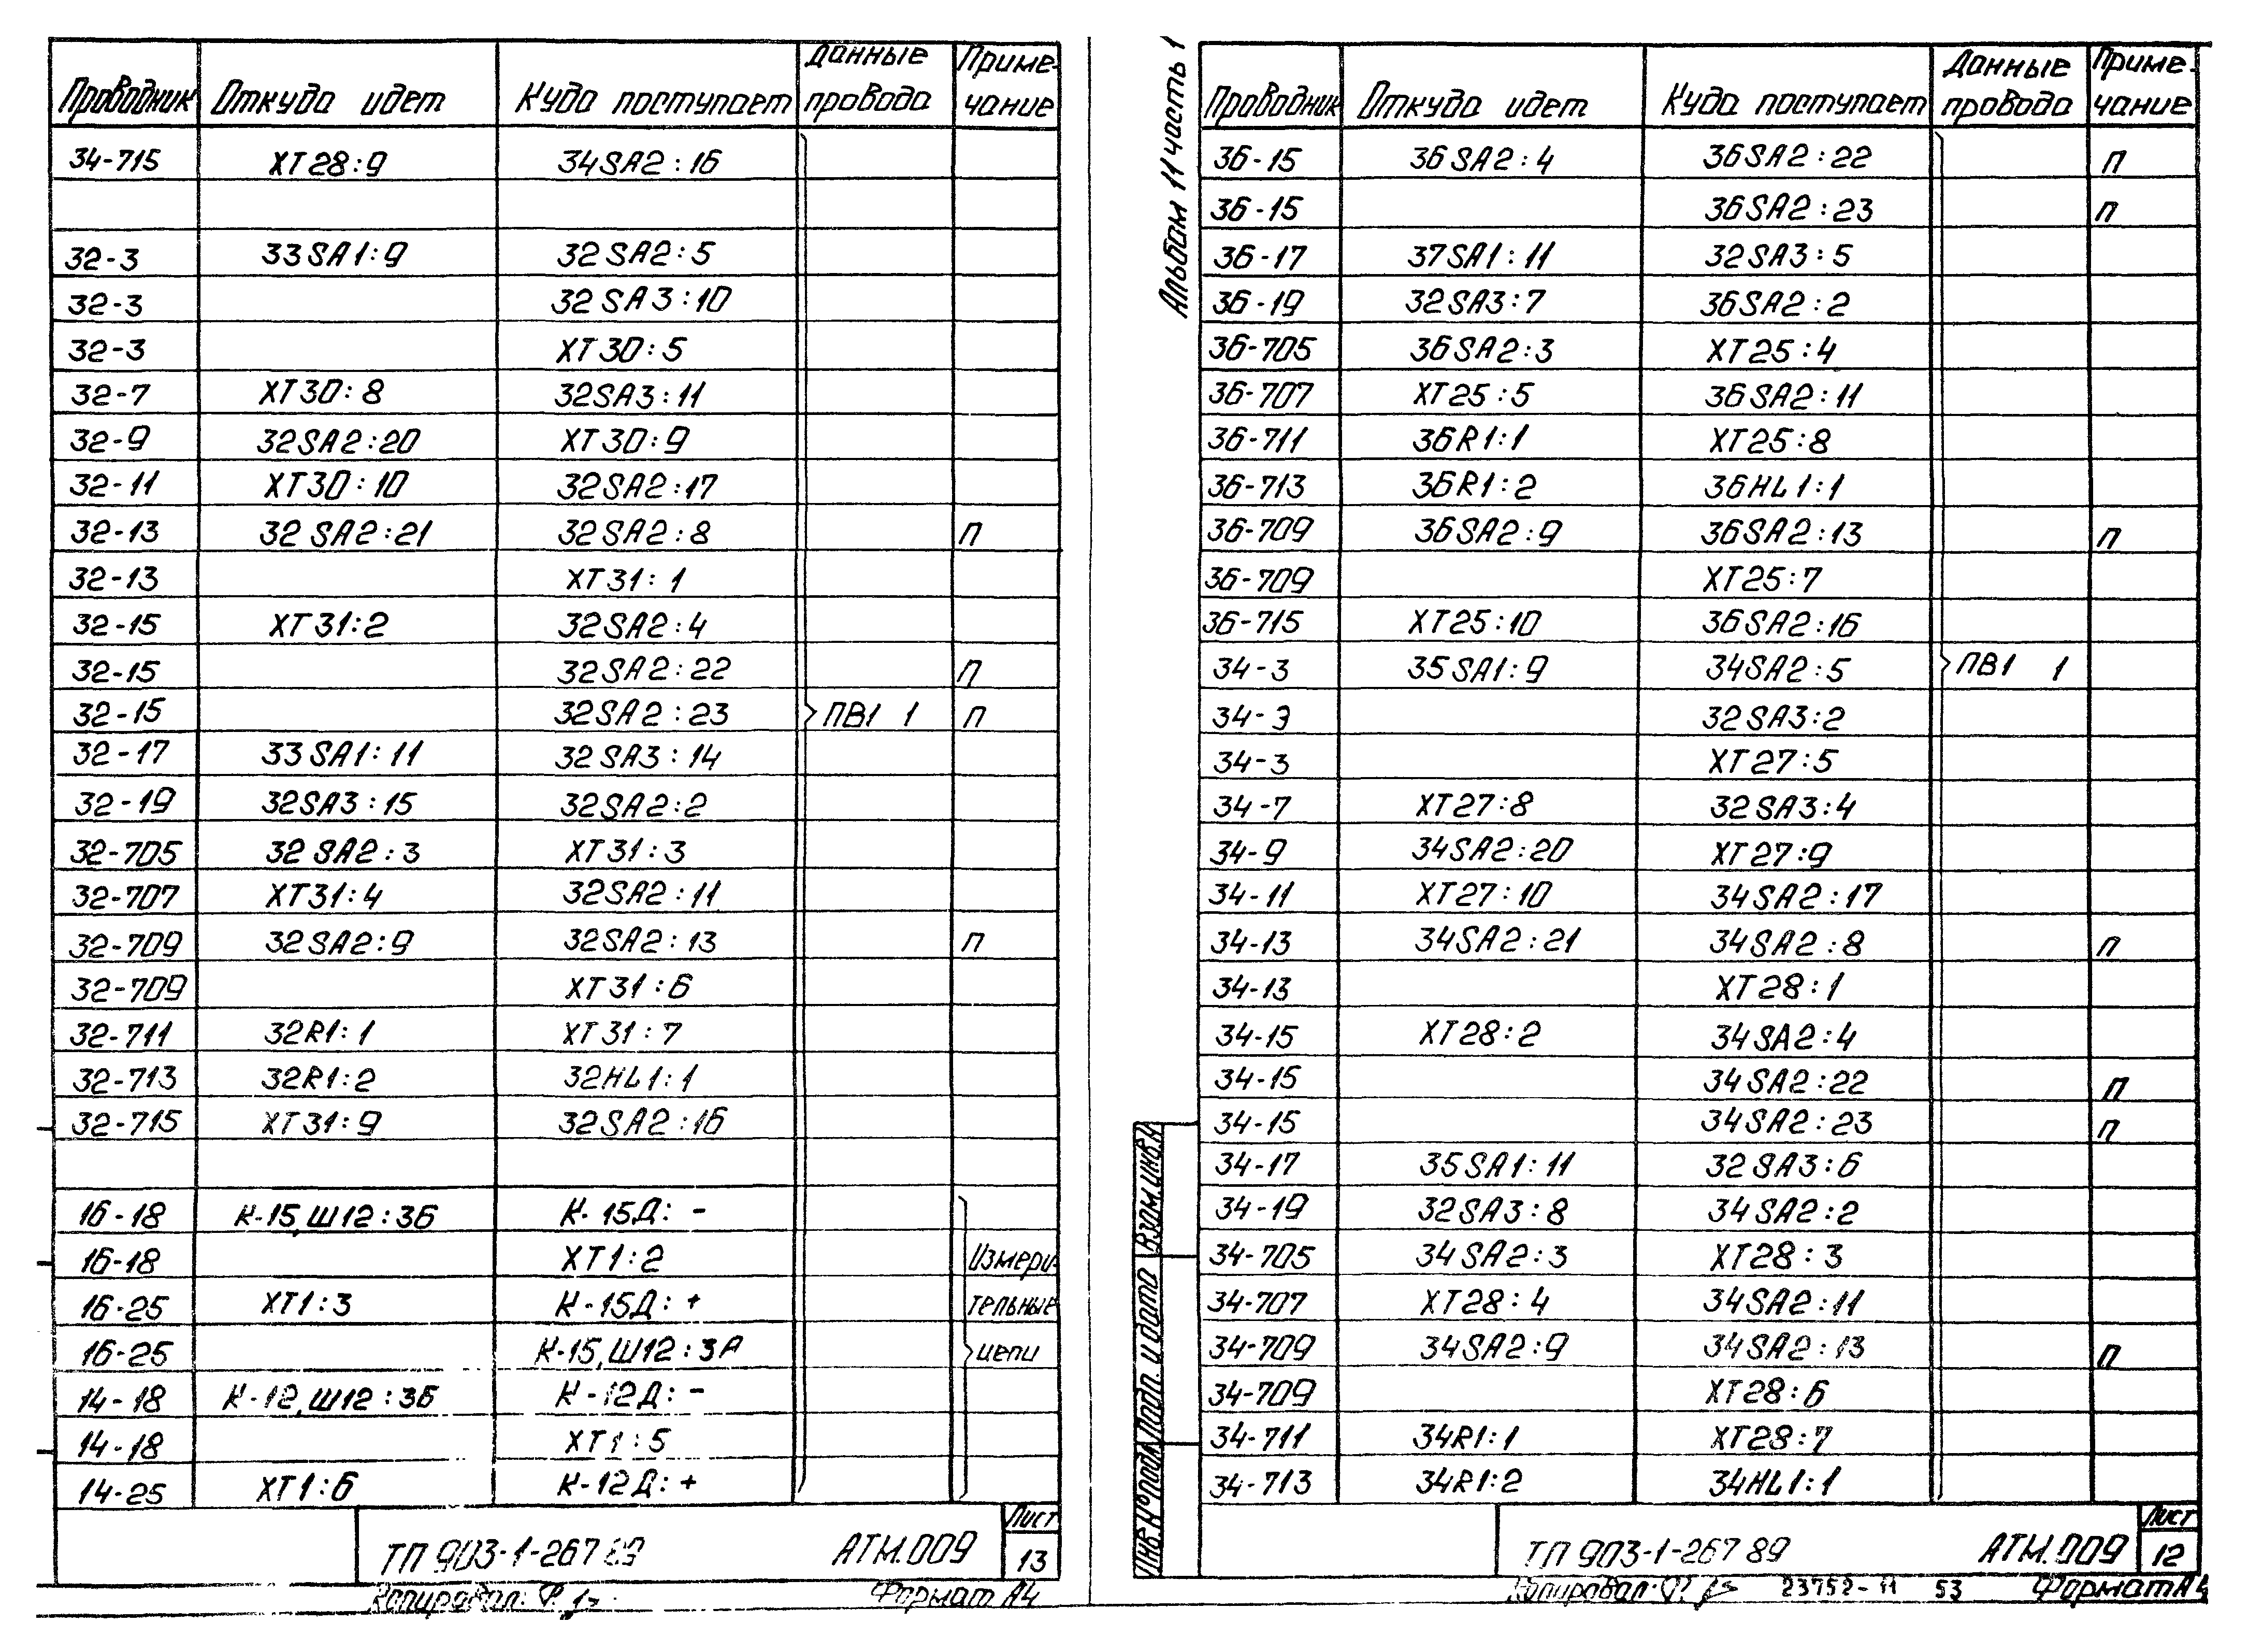 Проводник Откуда идет Куда поступает Данные провода Приме-чание
34-715 XT28:9 34SA2:16
32-3 33SA1:9 32SA2:5
32-3 32SA3:10
32-3 XT30:5
32-7 XT30:8 32SA3:11
32-9 32SA2:20 XT30:9
32-11 XT30:10 32SA2:17
32-13 32SA2:21 32SA2:8 п
32-13 XT31:1
32-15 XT31:2 32SA2:4
32-15 32SA2:22 п
32-15 32SA2:23 ПВ1 1 п
32-17 33SA1:11 32SA3:14
32-19 32SA3:15 32SA2:2
32-705 32SA2:3 XT31:3
32-707 XT31:4 32SA2:11
32-709 32SA2:9 32SA2:13 п
32-709 XT31:6
32-711 32R1:1 XT31:7
32-713 32R1:2 32HL1:1
32-715 XT31:9 32SA2:16
16-18 К-15,Ш12:3Б К-15Д: -
16-18 XT1:2 Измери-
16-25 XT1:3 К-15Д: + тельные
16-25 К-15,Ш12:3А цепи
14-18 К-12,Ш12:3Б К-12Д: -
14-18 XT1:5
14-25 XT1:6 К-12Д: +
ТП 903-1-267 89 АТМ.009 Лист 13
Копировал: Формат А4
Альбом 11 часть 1
Проводник Откуда идет Куда поступает Данные провода Приме-чание
36-15 36SA2:4 36SA2:22 п
36-15 36SA2:23 п
36-17 37SA1:11 32SA3:5
36-19 32SA3:7 36SA2:2
36-705 36SA2:3 XT25:4
36-707 XT25:5 36SA2:11
36-711 36R1:1 XT25:8
36-713 36R1:2 36HL1:1
36-709 36SA2:9 36SA2:13 п
36-709 XT25:7
36-715 XT25:10 36SA2:16
34-3 35SA1:9 34SA2:5 ПВ1 1
34-3 32SA3:2
34-3 XT27:5
34-7 XT27:8 32SA3:4
34-9 34SA2:20 XT27:9
34-11 XT27:10 34SA2:17
34-13 34SA2:21 34SA2:8 п
34-13 XT28:1
34-15 XT28:2 34SA2:4
34-15 34SA2:22 п
34-15 34SA2:23 п
34-17 35SA1:11 32SA3:6
34-19 32SA3:8 34SA2:2
34-705 34SA2:3 XT28:3
34-707 XT28:4 34SA2:11
34-709 34SA2:9 34SA2:13 п
34-709 XT28:6
34-711 34R1:1 XT28:7
34-713 34R1:2 34HL1:1
Инв.№ подл. Подп. и дата Взам.инв.№
ТП 903-1-267 89 АТМ.009 Лист 12
Копировал: 23752-11 53 Формат А4